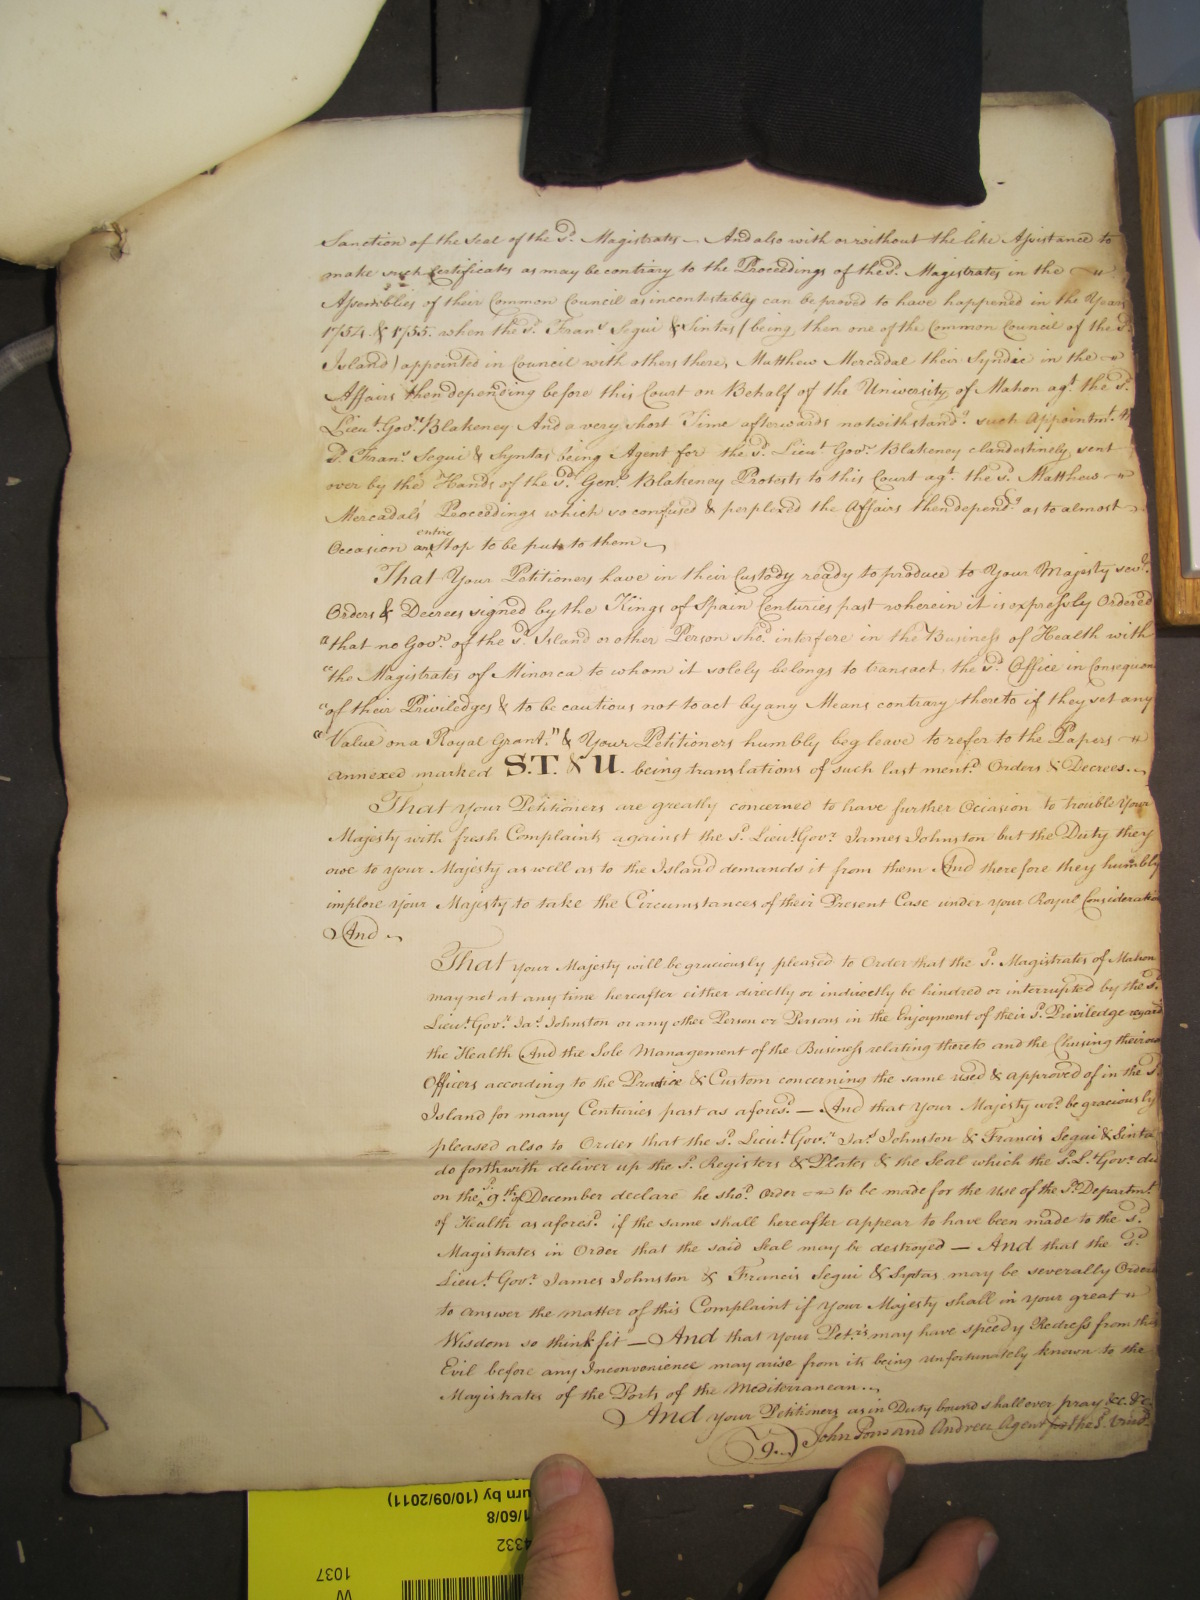 Sanction of the Seal of the sd. Magistrates — And also with or without the like Assistance to
make such Certificates as may be contrary to the Proceedings of the sd. Magistrates in the
Assemblies of their Common Council as incontestably can be proved to have happened in the Years
1754 & 1755. when the sd. Frans Segui & Sintas (being then one of the Common Council of the sd.
Island) appointed in Council with others there, Matthew Mercadal their Syndic in the
Affairs then depending before this Court on Behalf of the University of Mahon agt. the sd.
Lieut. Govr. Blakeney And a very short Time afterwards notwithstandg. such Appointmt.
Frans. Segui & Syntas being Agent for the sd. Lieut. Govr. Blakeney clandestinely sent
over by the Hands of the sd. Genl. Blakeney Protests to this Court agt. the sd. Matthew
Mercadals' Proceedings which so confused & perplexed the Affairs then dependg. as to almost
Occasion an entire Stop to be put to them
That Your Petitioners have in their Custody ready to produce to Your Majesty sevl.
Orders & Decrees signed by the Kings of Spain Centuries past wherein it is expressly Ordered
"that no Govr. of the sd. Island or other Person shod. interfere in the Business of Health with
"the Magistrates of Minorca to whom it solely belongs to transact, the sd. Office in
"of their Priviledges & to be cautious not to act by any Means contrary thereto if they set any
"Value on a Royal Grant." & Your Petitioners humbly beg leave to refer to the Papers
annexed marked S.T. & U. being translations of such last mentd. Orders & Decrees.
That your Petitioners are greatly concerned to have further Occasion to trouble Your
Majesty with fresh Complaints against the sd. Lieut. Govr. James Johnston but the Duty they
owe to your Majesty as well as to the Island demands it from them And therefore they humbly
implore your Majesty to take the Circumstances of their Present Case under your Royal Consideration
And
That your Majesty will be graciously pleased to Order that the sd. Magistrates of Mahon
may not at any time hereafter either directly or indirectly be hindred or interrupted by the sd.
Lieut. Govr. Jas. Johnston or any other Person or Persons in the Enjoyment of their sd. Priviledge
the Health And the Sole Management of the Business relating thereto and the Chusing their own
Officers according to the Practice & Custom concerning the same used & approved of in the sd.
Island for many Centuries past as aforesd. — And that Your Majesty wod. be graciously
pleased also to Order that the sd. Lieut. Govr. Jas. Johnston & Francis Segui & Sintas
do forthwith deliver up the sd. Registers & Plates & the Seal which the sd. Lt. Govr. did
on the sd. 9th of December declare he shod. Order to be made for the use of the sd. Departmt.
of Health as aforesd. if the same shall hereafter appear to have been made to the sd.
Magistrates in Order that the said Seal may be destroyed — And that the sd.
Lieut. Govr. James Johnston & Francis Segui & Syntas may be severally Ordered
to answer the matter of this Complaint if your Majesty shall in your great
Wisdom so think fit — And that your Petrs. may have speedy Redress from this
Evil before any Inconvenience may arise from its being unfortunately known to the
Magistrates of the Ports of the Mediterranean.
And your Petitioners as in Duty bound shall ever pray &c. &c.
John Pons and Andreu Agent for the sd.
urn by (10/09/2011)
1/60/8
4332
1037
W